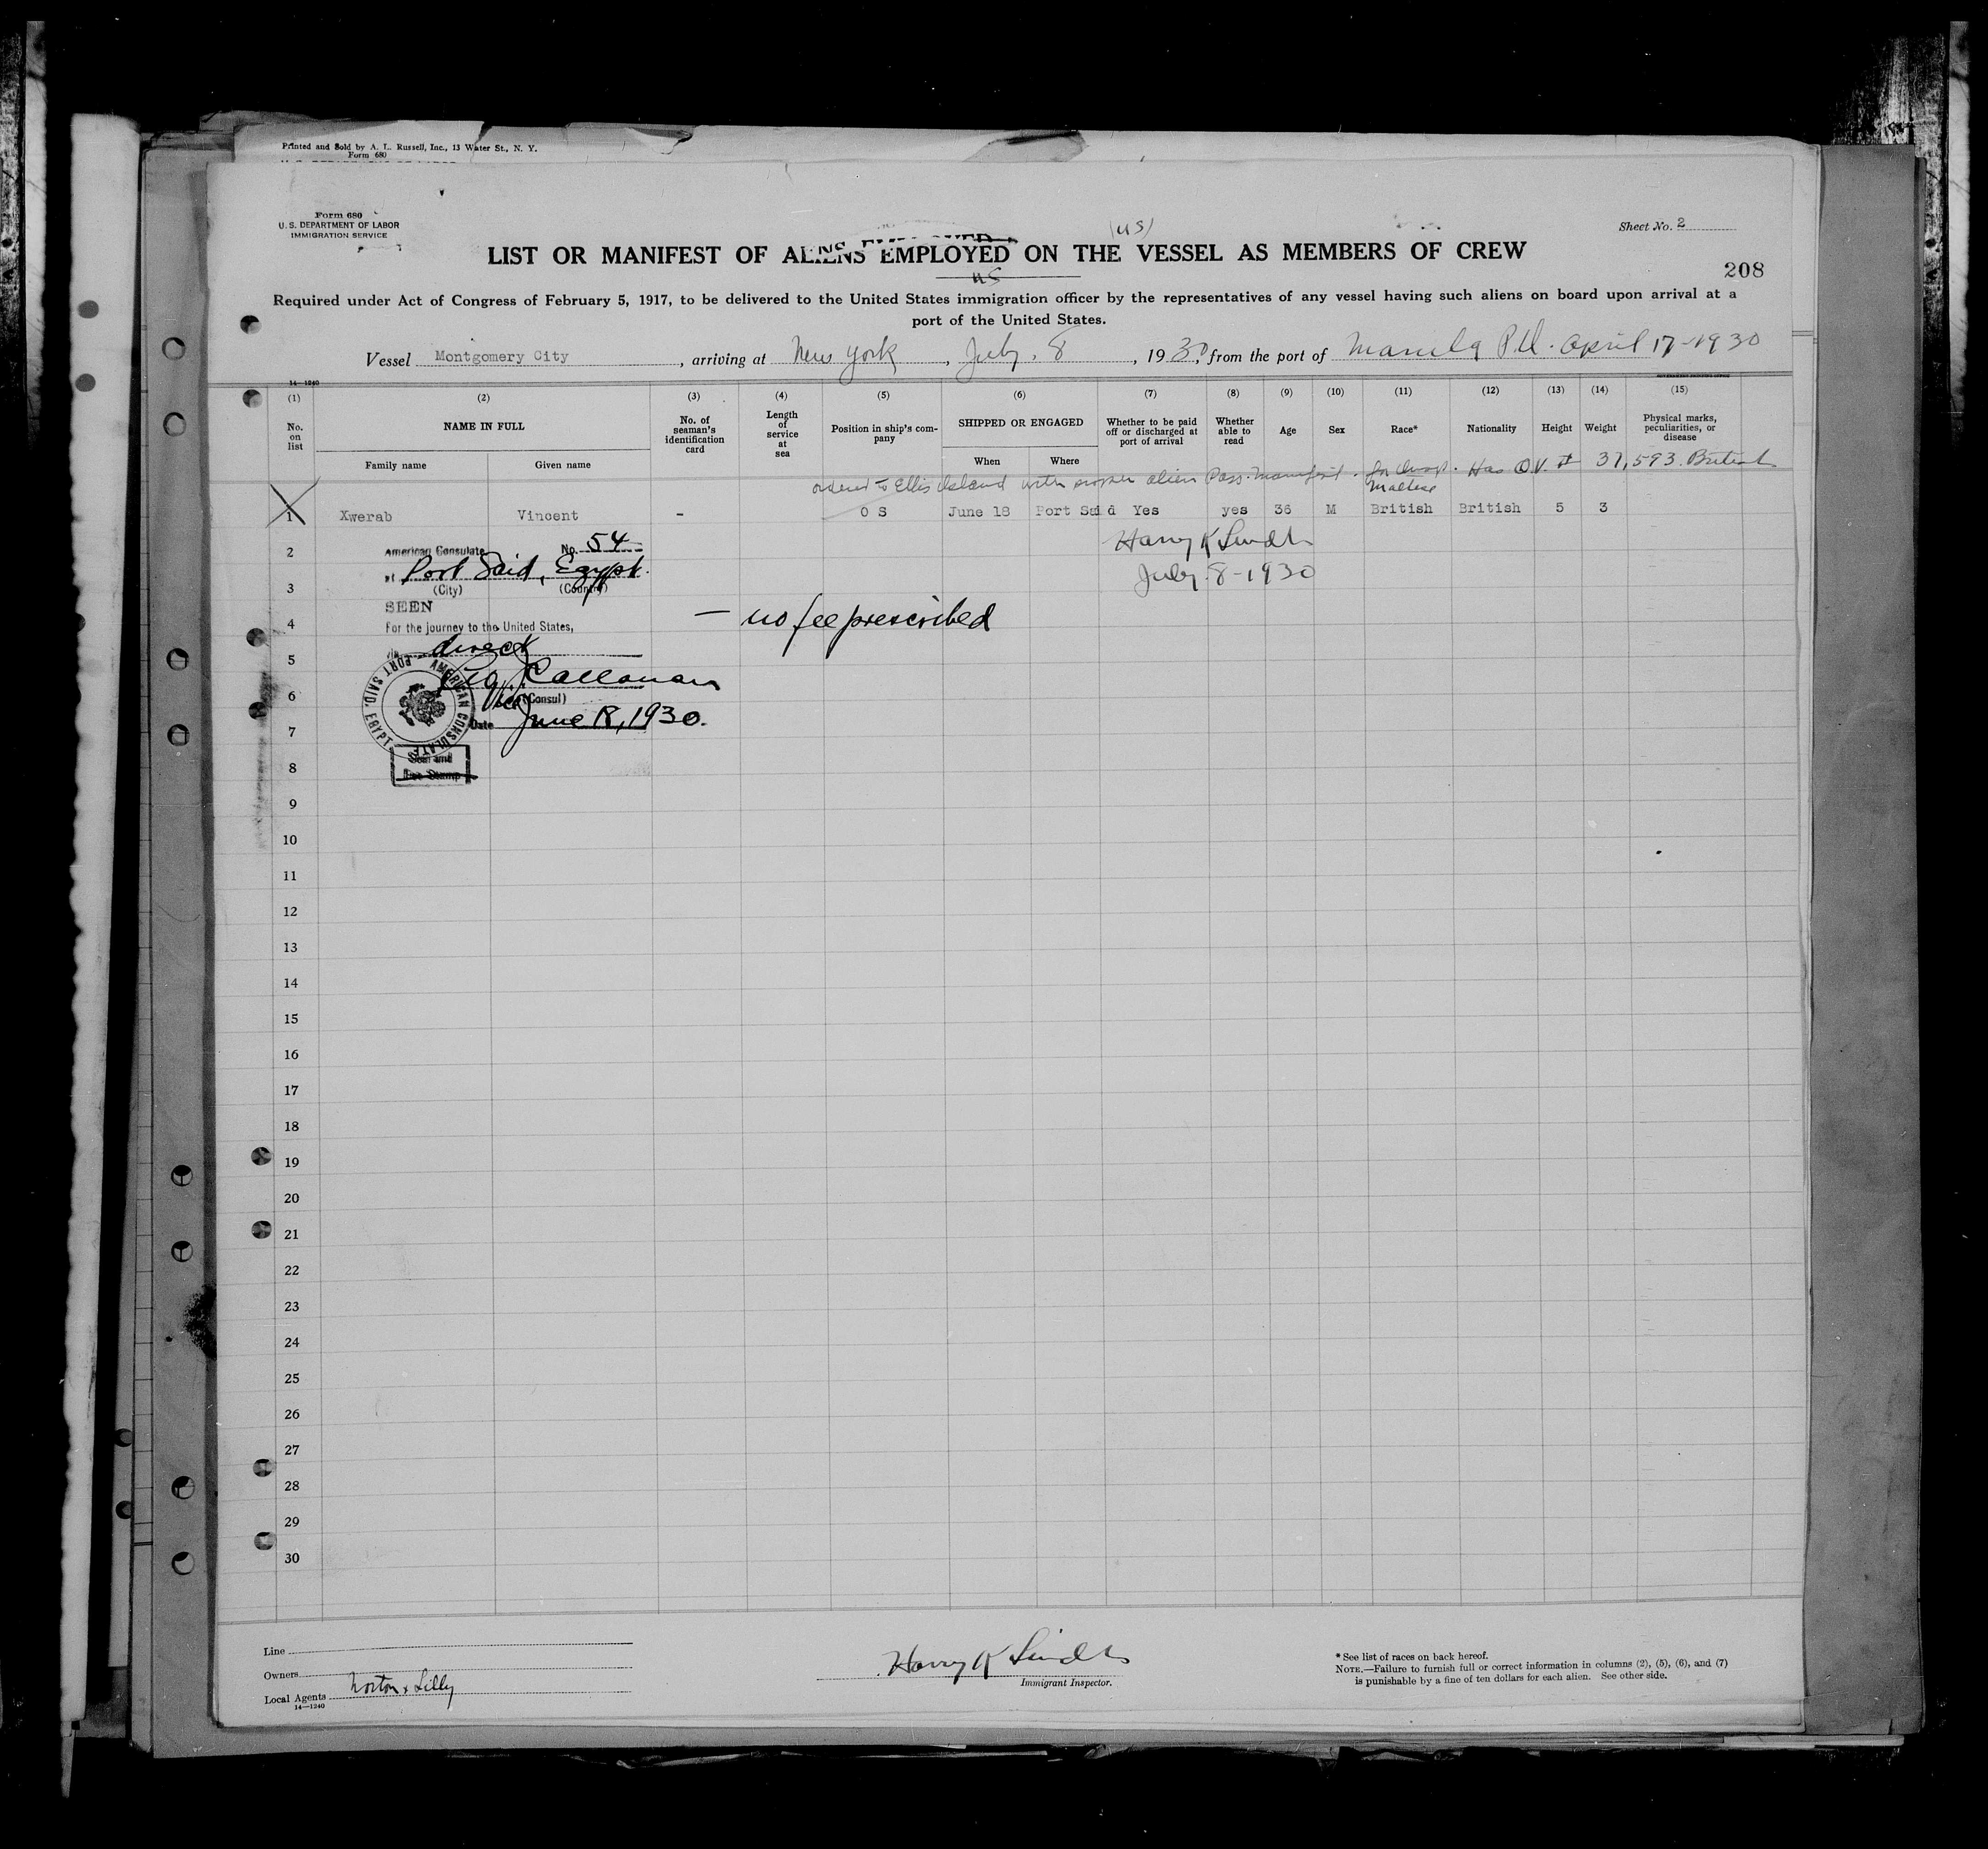 Printed and Sold by A. L. Russell, Inc., 13 Water St., N. Y.
Form 680
Form 680
U. S. DEPARTMENT OF LABOR
IMMIGRATION SERVICE
(US)
Sheet No. 2
LIST OR MANIFEST OF ALIENS EMPLOYED ON THE VESSEL AS MEMBERS OF CREW
US
208
Required under Act of Congress of February 5, 1917, to be delivered to the United States immigration officer by the representatives of any vessel having such aliens on board upon arrival at a
port of the United States.
Vessel Montgomery City, arriving at New York, July 8, 1930, from the port of Manila P.I. April 17-1930
14—1240
(1) (2) (3) (4) (5) (6) (7) (8) (9) (10) (11) (12) (13) (14) (15)
No. on list
NAME IN FULL
Family name Given name
No. of seaman's identification card
Length of service at sea
Position in ship's company
SHIPPED OR ENGAGED
When Where
Whether to be paid off or discharged at port of arrival
Whether able to read
Age
Sex
Race*
Nationality
Height
Weight
Physical marks, peculiarities, or disease
ordered to Ellis Island with proper alien Pass. Manifest. Has Q.V. # 37,593 British
Maltese
1 Xwerab Vincent - O S June 18 Port Said Yes yes 36 M British British 5 3
2 American Consulate No. 54 Harry K Lindh
at Port Said, Egypt. July 8-1930
3 (City) (Country)
SEEN
4 For the journey to the United States, — no fee prescribed
direct
5 Callanan
6 Vice (Consul)
AMERICAN CONSULATE PORT SAID, EGYPT.
7 Date June 18, 1930.
8 Seal and
Fee Stamp
9
10
11
12
13
14
15
16
17
18
19
20
21
22
23
24
25
26
27
28
29
30
Line
Owners
Local Agents Norton & Lilly
14—1240
Harry K Lindh
Immigrant Inspector.
* See list of races on back hereof.
NOTE.—Failure to furnish full or correct information in columns (2), (5), (6), and (7)
is punishable by a fine of ten dollars for each alien. See other side.